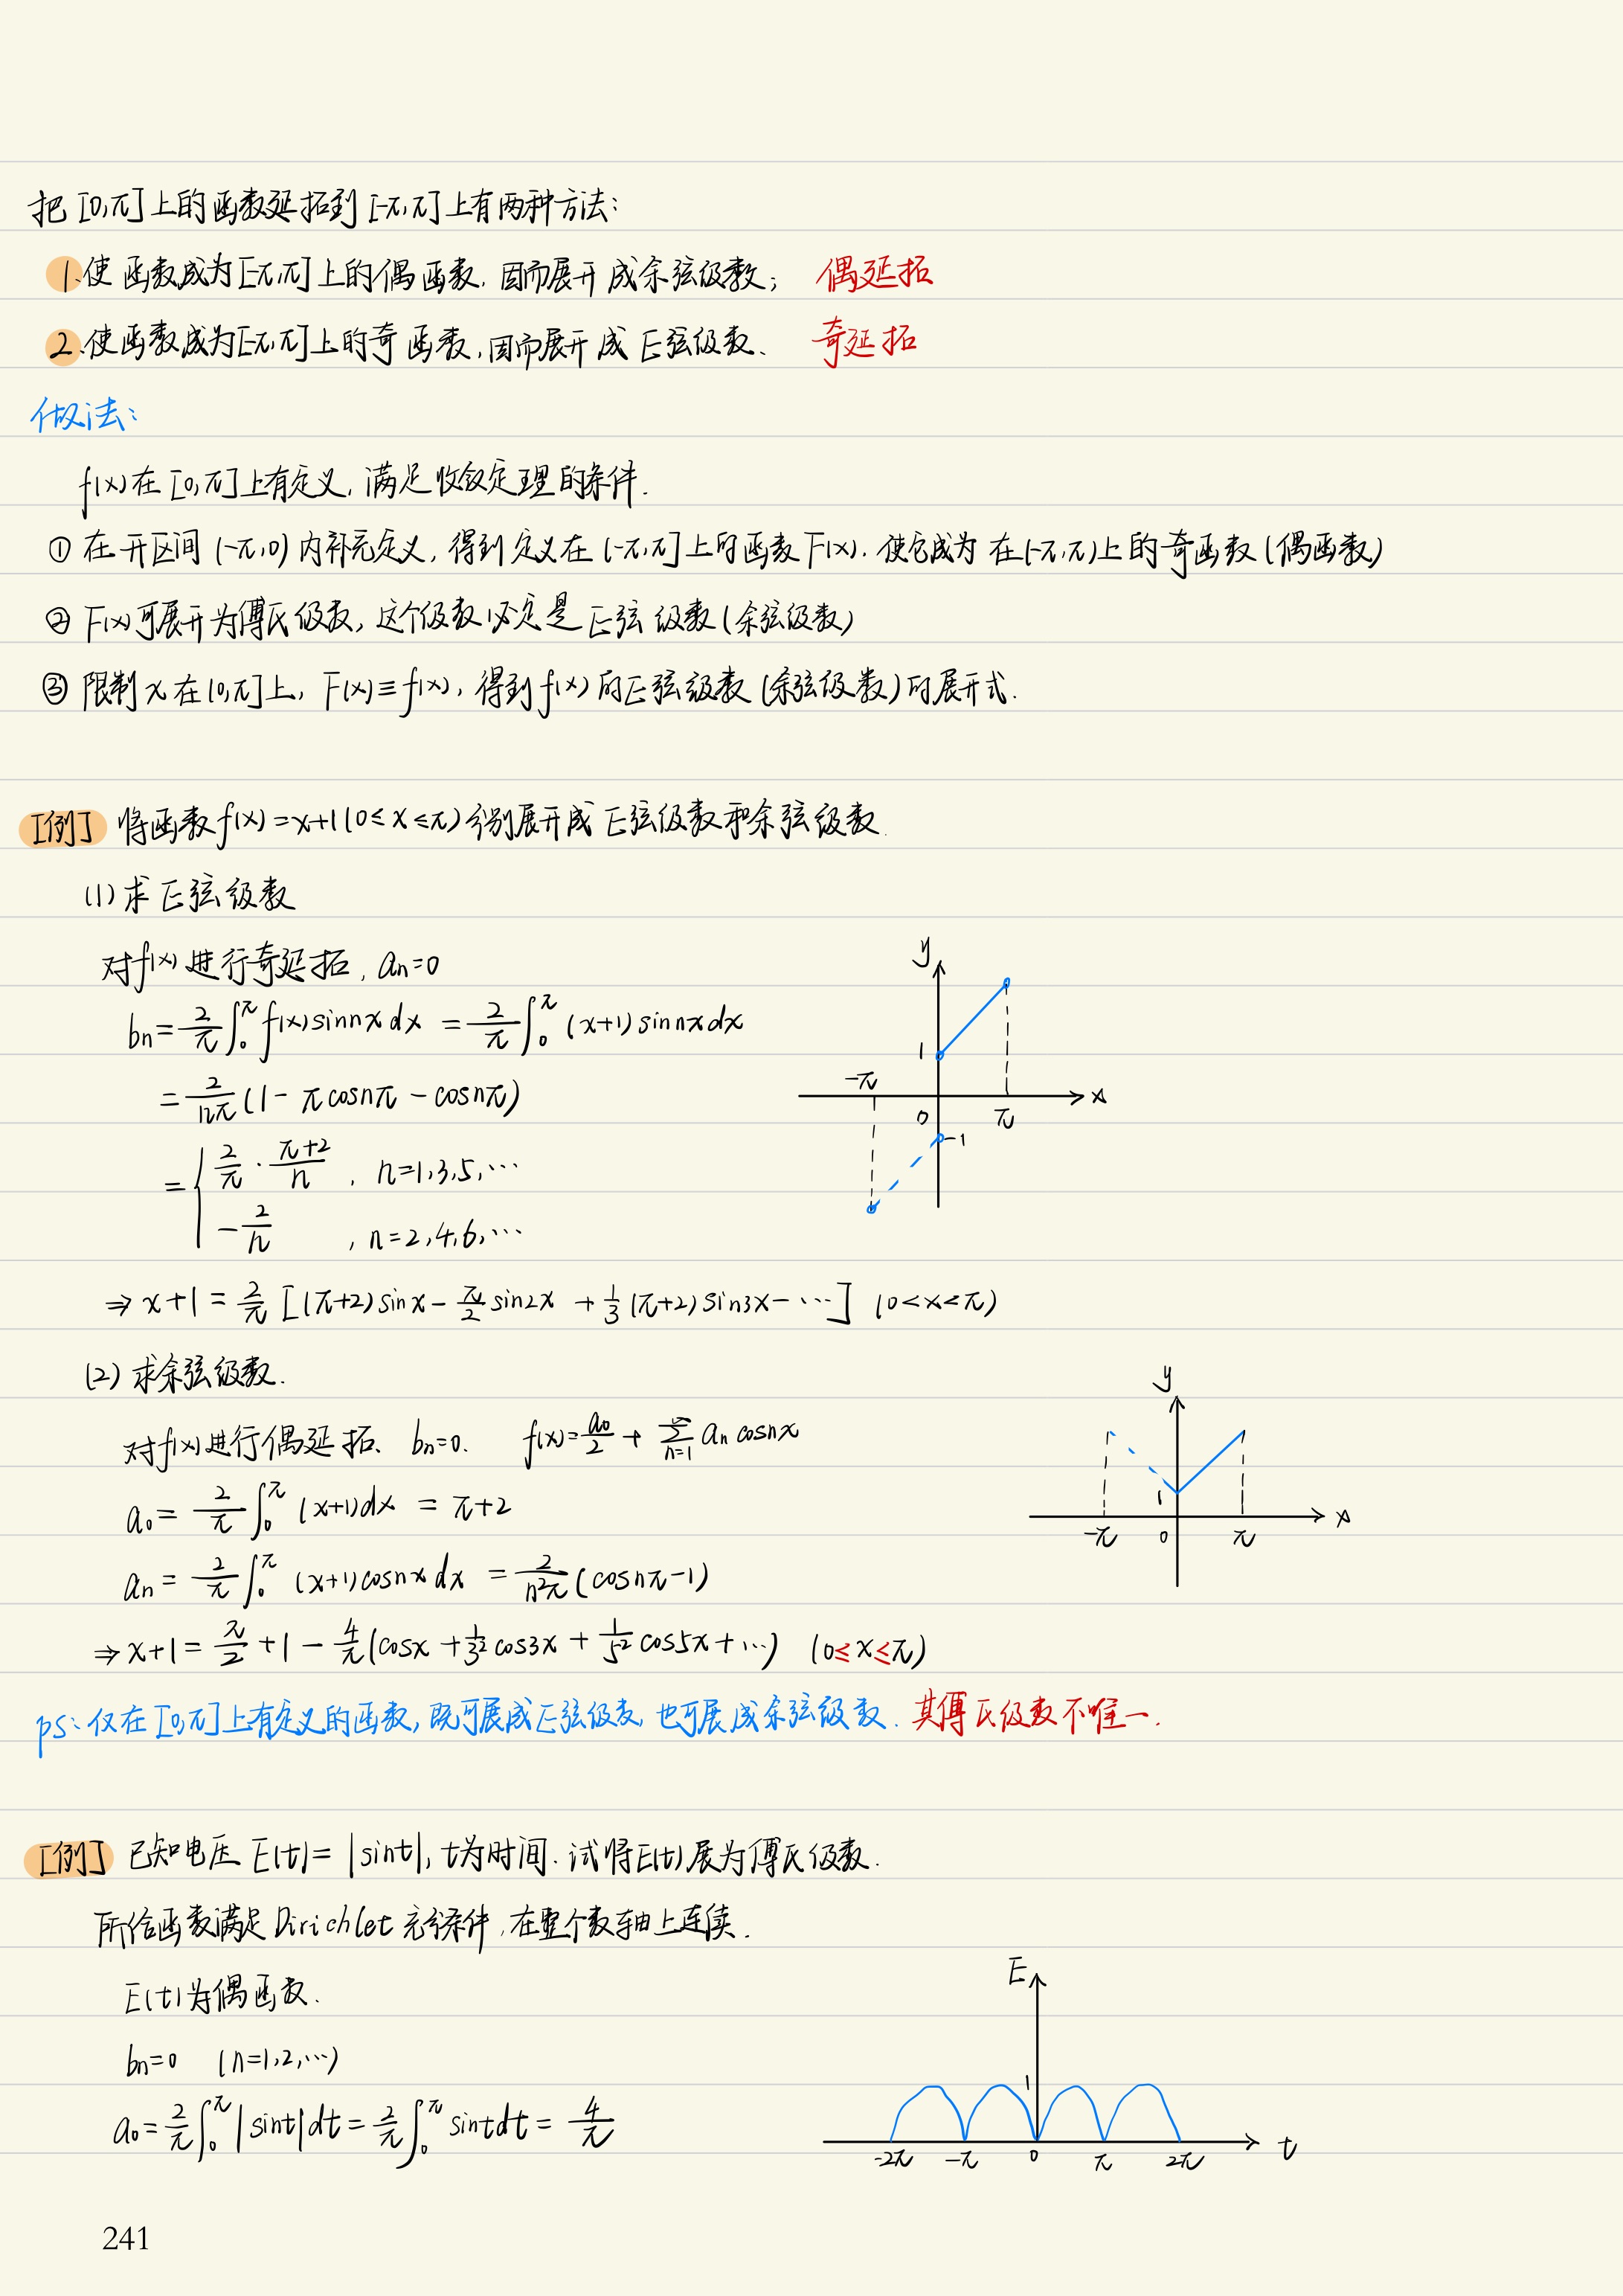 把[0,π]上的函数延拓到[-π,π]上有两种方法：
1.使函数成为[-π,π]上的偶函数，因而展开成余弦级数； 偶延拓
2.使函数成为[-π,π]上的奇函数，因而展开成正弦级数、 奇延拓
做法：
f(x)在[0,π]上有定义，满足收敛定理的条件.
① 在开区间(-π,0)内补充定义，得到定义在(-π,π]上的函数F(x)，使它成为在(-π,π)上的奇函数(偶函数)
② F(x)可展开为傅氏级数，这个级数必定是正弦级数(余弦级数)
③ 限制x在(0,π]上，F(x)≡f(x)，得到f(x)的正弦级数(余弦级数)的展开式.
[例] 将函数f(x)=x+1(0≤x≤π)分别展开成正弦级数和余弦级数.
(1)求正弦级数
对f(x)进行奇延拓，an=0
bn=2/π ∫₀^π f(x)sinnxdx = 2/π ∫₀^π (x+1)sinnxdx
= 2/nπ (1-πcosnπ-cosnπ)
= { 2/π · (π+2)/n , n=1,3,5,…
-2/n , n=2,4,6,…
⇒ x+1 = 2/π [(π+2)sinx - π/2 sin2x + 1/3 (π+2)sin3x - …] (0<x<π)
y
1
-π
0
π
x
-1
(2) 求余弦级数.
对f(x)进行偶延拓、 bn=0. f(x)=a0/2 + ∑_{n=1}^∞ an cosnx
a0 = 2/π ∫₀^π (x+1)dx = π+2
an = 2/π ∫₀^π (x+1)cosnxdx = 2/n²π (cosnπ-1)
⇒ x+1 = π/2 + 1 - 4/π (cosx + 1/3² cos3x + 1/5² cos5x + …) (0≤x≤π)
y
1
-π
0
π
x
ps：仅在[0,π]上有定义的函数，既可展成正弦级数，也可展成余弦级数. 其傅氏级数不唯一.
[例] 已知电压E(t)=|sint|，t为时间. 试将E(t)展为傅氏级数.
所给函数满足Dirichlet充分条件，在整个数轴上连续.
E(t)为偶函数.
bn=0 (n=1,2,…)
a0 = 2/π ∫₀^π |sint|dt = 2/π ∫₀^π sintdt = 4/π
E
1
-2π
-π
0
π
2π
t
241